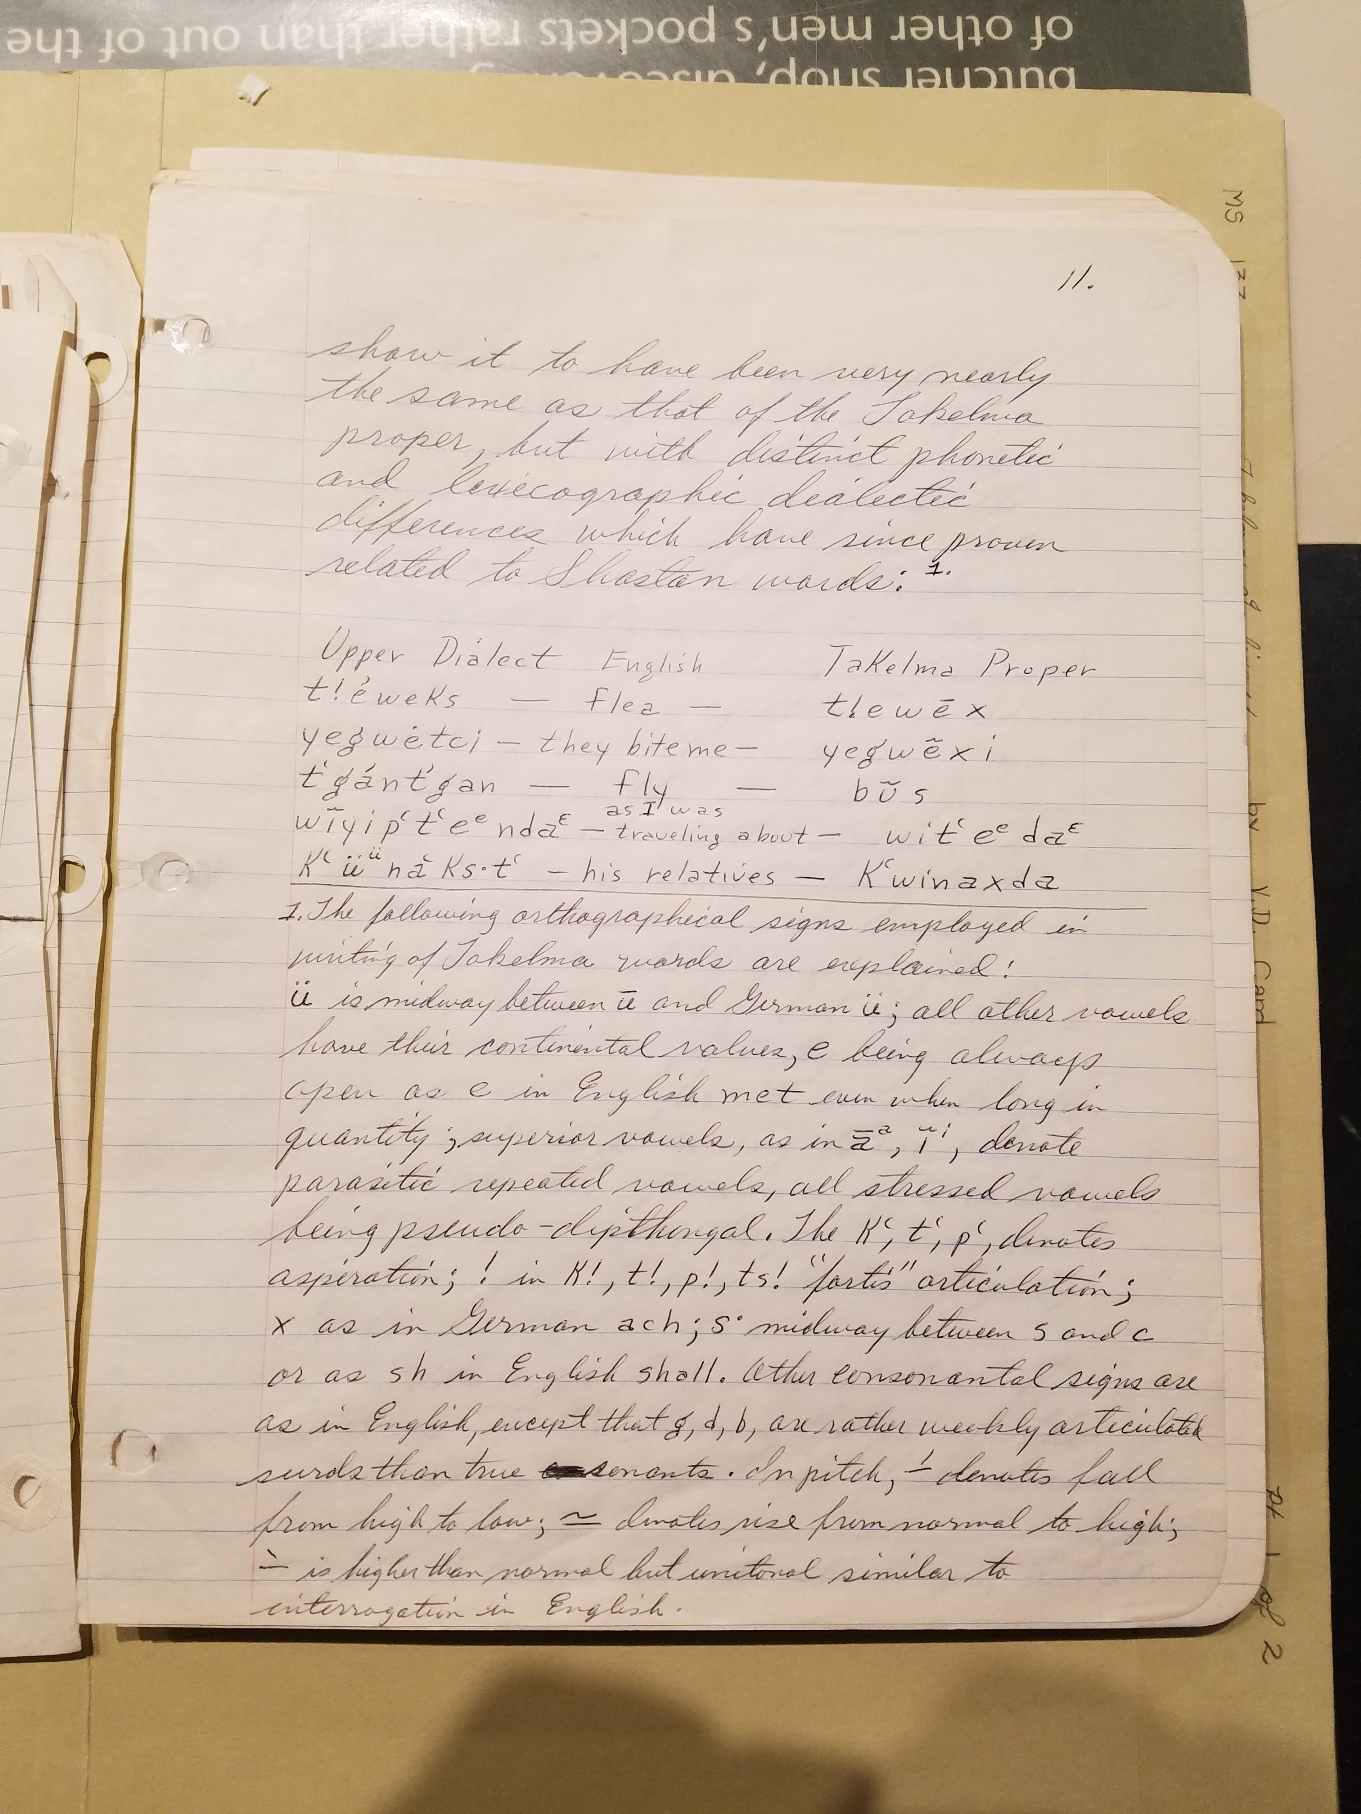 of other men's pockets rather than out of the
butcher shop,
11.
show it to have been very nearly
the same as that of the Takelma
proper, but with distinct phonetic
and lexecographic dialectic
differences which have since proven
related to Shastan words: 1.
Upper Dialect English Takelma Proper
t!éweks — flea — t!ewēx
yegwétci — they bite me — yegwẽxi
t‘gánt‘gan — fly — bũs
as I was
wĩyip‘t‘eᵉndaᵋ — traveling about — wit‘eᵉdaᵋ
K‘üᵘ̈năks·t‘ — his relatives — K‘winaxda
1. The following orthographical signs employed in
writing of Takelma words are explained:
ü is midway between ū and German ü; all other vowels
have their continental values, e being always
open as e in English met even when long in
quantity; superior vowels, as in āᵃ, ĩⁱ, denote
parasitic repeated vowels, all stressed vowels
being pseudo-dipthongal. The K‘, t‘, p‘, denotes
aspiration; ! in K!, t!, p!, ts! "fortis" articulation;
x as in German ach; s· midway between s and c
or as sh in English shall. Other consonantal signs are
as in English, except that g, d, b, are rather weekly articulated
surds than true sonants. In pitch, ´ denotes fall
from high to low; ~ denotes rise from normal to high;
` is higher than normal but unitonal similar to
interrogation in English.
MS 177
by V.D. Card
pt 1 of 2